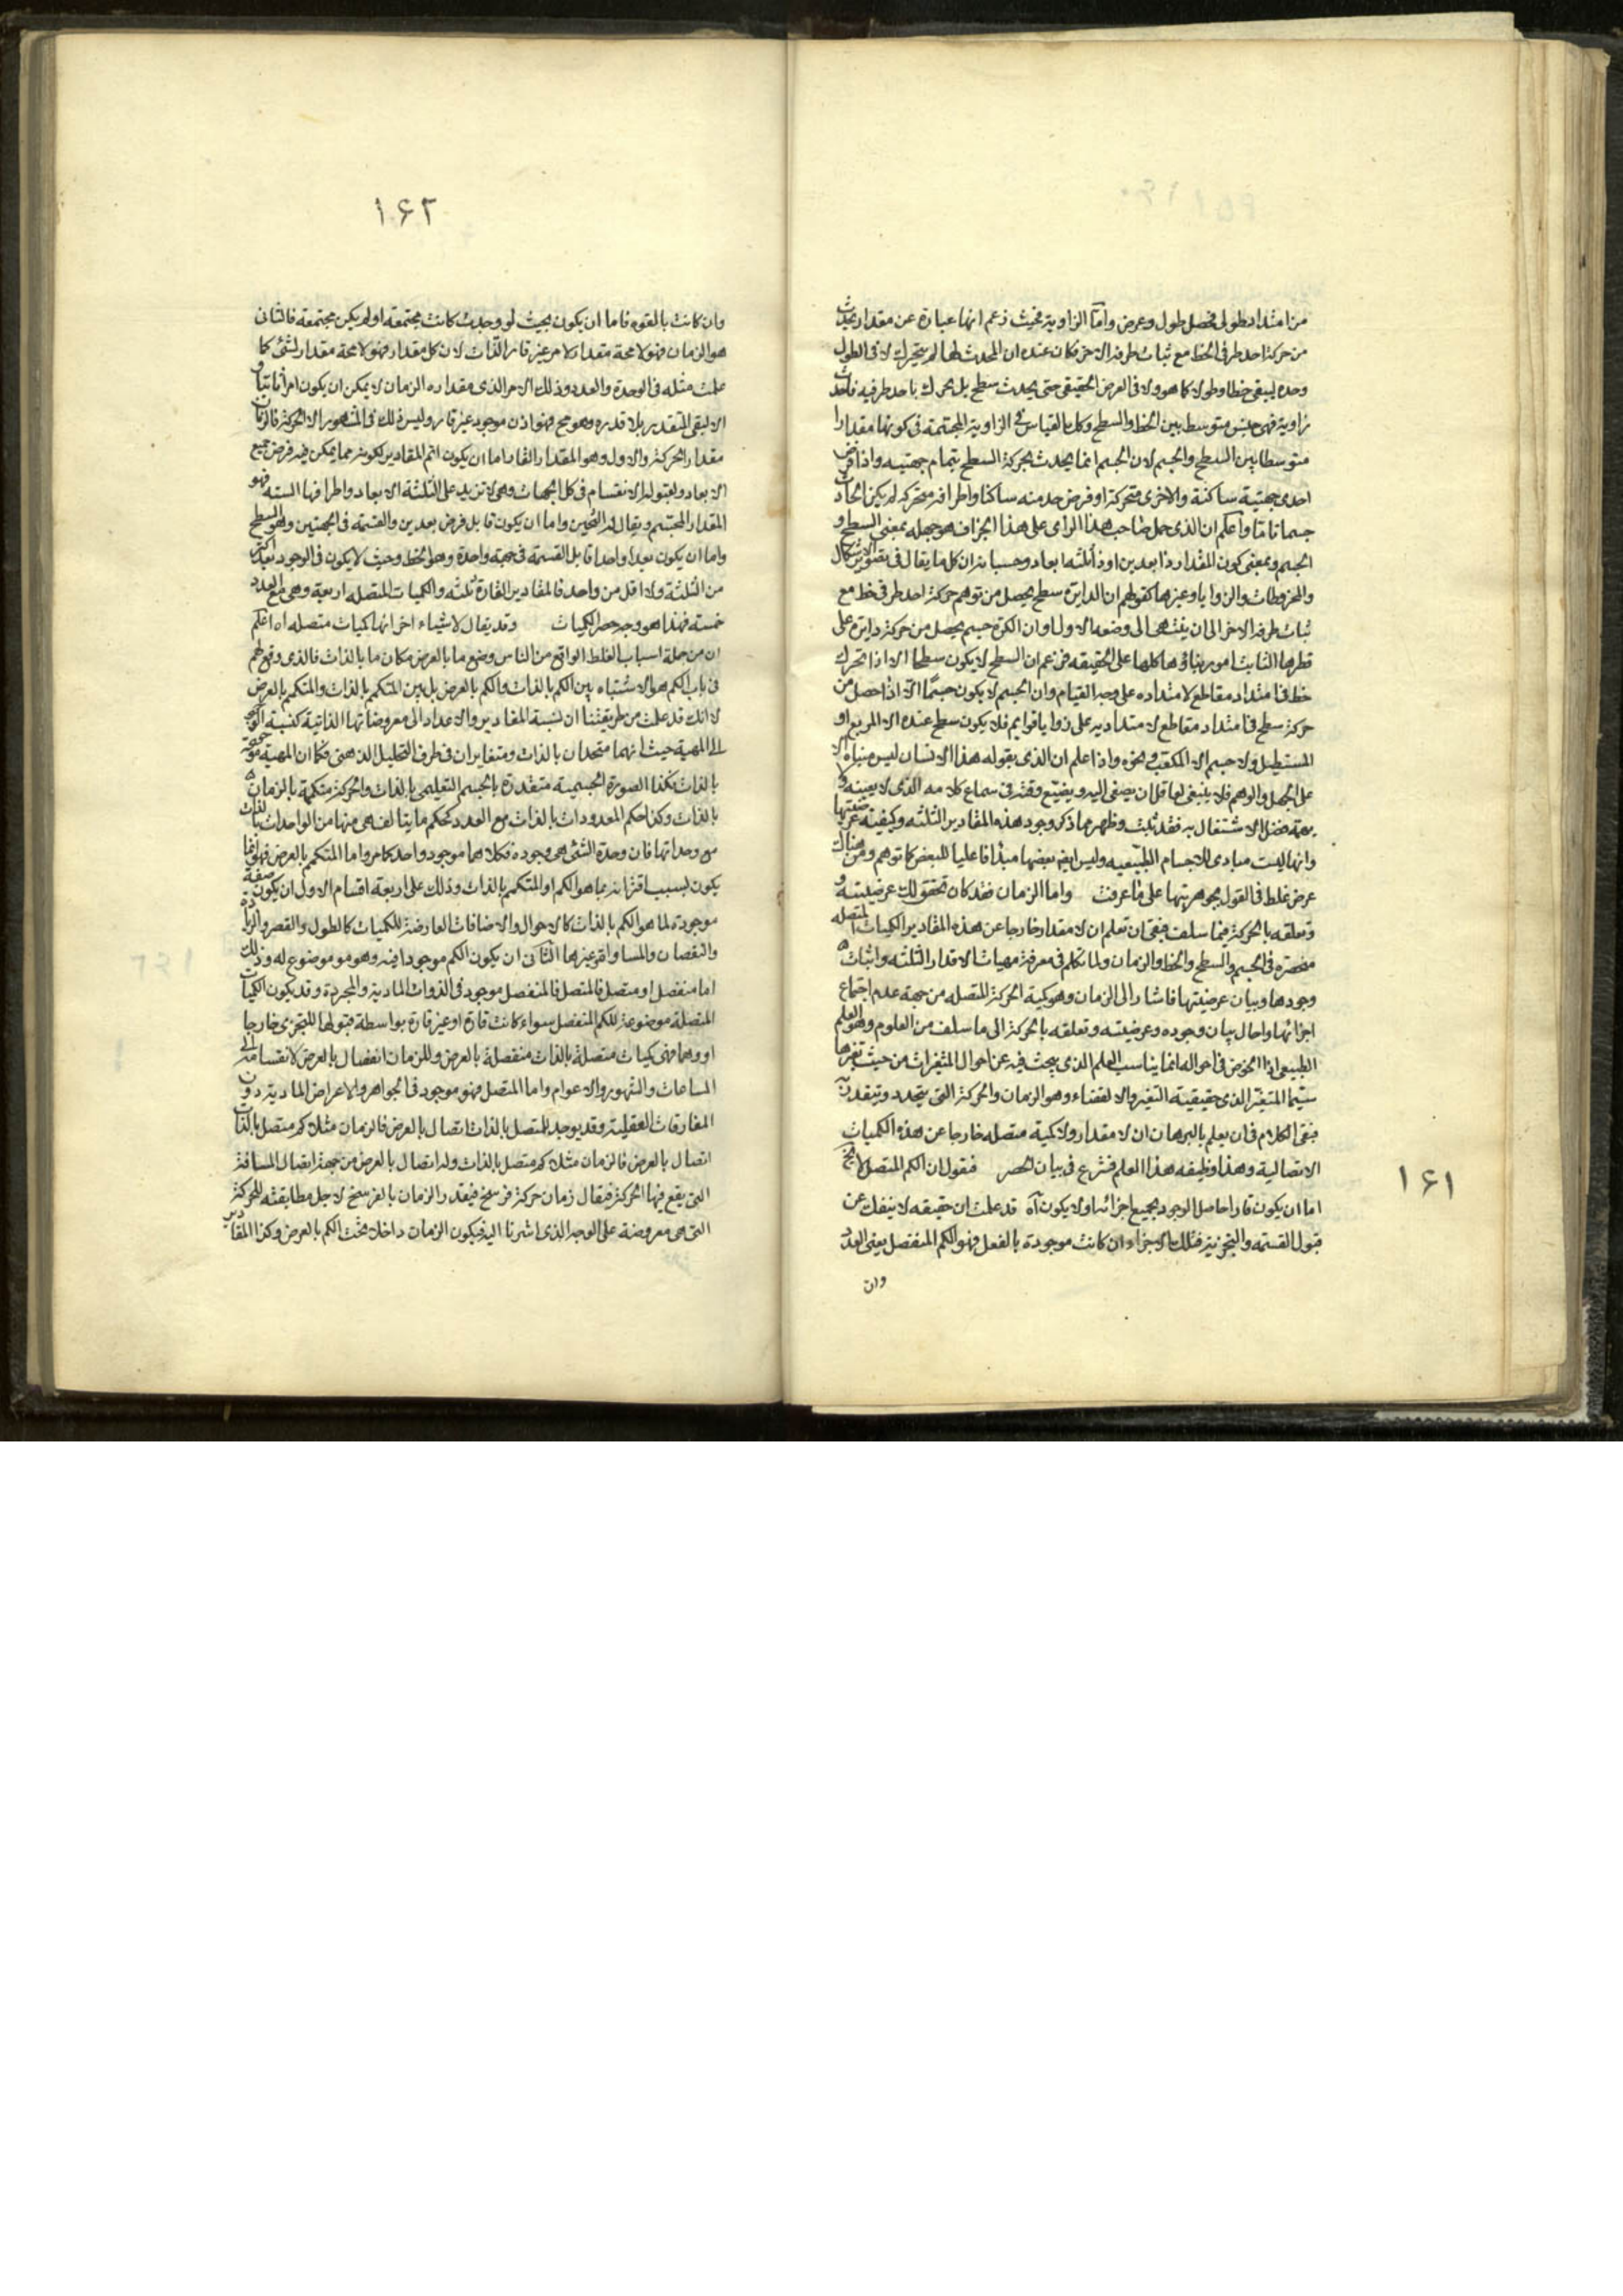 من امتداد طولى فحصل طول وعرض واما الزاوية فحيث زعم انها عبارة عن مقدار يحدث
من حركة احد طرفى الخط مع ثبات طرفه الاخر فكان عنده ان المحدث لها لم يتحرك لا فى الطول
وحده ليبقى خطا وطولا كما هو ولا فى العرض الحقيقى حتى يحدث سطح بل تحرك باحد طرفيه فاحدث
زاوية فهى جنس متوسط بين الخط والسطح وكذا القياس فى الزاوية المجتمعة فى كونها مقدارا
متوسطا بين السطح والجسم لان الجسم انما يحدث بحركة السطح بتمام جهتيه واذا فرض
احدى جهتيه ساكنة والاخرى متحركة او فرض حد منه ساكنا واطرافه متحركه لم يكن الحادث
جسما تاما واعلم ان الذى حمل صاحب هذا الراى على هذا الجزاف هو جهله بمعنى السطح و
الجسم وبمعنى كون المقدار ذا بعدين او ذا ثلثه ابعاد وحسبانه ان كل ما يقال فى تصوير الاشكال
والمخروطات والزوايا وغيرها كقولهم ان الدايرة سطح يحصل من توهم حركة احد طرفى خط مع
ثبات طرفه الاخر الى ان ينتهى الى وضعه الاول وان الكرة جسم يحصل من حركة دايرة على
قطرها الثابت امور بناؤها كلها على الحقيقه فزعم ان السطح لا يكون سطحا الا اذا تحرك
خط فى امتداد مقاطع لامتداده على وجه القيام وان الجسم لا يكون جسما الا اذا حصل من
حركة سطح فى امتداد مقاطع لامتداديه على زوايا قوايم فلا يكون سطح عنده الا المربع او
المستطيل ولا جسم الا المكعب ونحوه واذا علم ان الذى بقوله هذا الانسان ليس مبناه الا
على الجهل والوهم فلا ينبغى لعاقل ان يصغى اليه ويضيع وقته فى سماع كلامه الذى لا يعينه و
يهمه فضل الاشتغال به فقد ثبت وظهر مما ذكر وجود هذه المقادير الثلثه وكيفية عرضيتها
وانها ليست مبادى للاجسام الطبيعيه وليس ايضا بعضها مبدا فاعليا للبعض كما توهم ومن هناك
عرض غلط فى القول بجوهريتها على ما عرفت واما الزمان فقد كان تحقق لك عرضيته و
وتعلقه بالحركة فيما سلف فبقى ان تعلم ان لا مقدار خارجا عن هذه المقادير الكميات المتصله
منحصره فى الجسم والسطح والخط والزمان ولما تكلم فى معرفة مهيات الاقدار الثلثه واثبات
وجودها وبيان عرضيتها فاشار الى الزمان وهو كمية الحركة المتصله من جهة عدم اجتماع
اجزائها واحال بيان وجوده وعرضيته وتعلقه بالحركة الى ما سلف من العلوم وهو العلم
الطبيعى اذ الخوض فى احواله انما يناسب العلم الذى يبحث فيه عن احوال المتغيرات من حيث تغيرها
سيما المتغير الذى حقيقته التغير والانقضاء وهو الزمان والحركة التى يتجدد ويتقدر به
فبقى الكلام فى ان يعلم بالبرهان ان لا مقدار ولا كمية متصله خارجا عن هذه الكميات
الاتصالية وهذا وظيفه هذا العلم فشرع فى بيان الحصر فنقول ان الكم المتصل لا يخ
اما ان يكون قارا حاصل الوجود بجميع اجزائه او لا يكون اه قد علمت ان حقيقه لا ينفك عن
قبول القسمه والتجزية فتلك الاجزاء ان كانت موجودة بالفعل فهو الكم المنفصل يعنى العدد
وان
١٦١
١٦٢
وان كانت بالقوه فاما ان يكون بحيث لو وجدت كانت مجتمعه او لم يكن مجتمعه فالثانى
هو الزمان فهو لا محة مقدار لامر غير قار الذات لان كل مقدار فهو لا محة مقدار لشئ كما
علمت مثله فى الوحدة والعدد وذلك الامر الذى مقداره الزمان لا يمكن ان يكون امرا ثابتا و
الا لبقى المتقدر بلا قدره وهو مح فهو اذن موجود غير قار وليس ذلك فى المشهور الا الحركة فالزمان
مقدار الحركة والاول وهو المقدار القار اما ان يكون اتم المقادير لكونه مما يمكن فيه فرض جميع
الابعاد ولقبوله الانقسام فى كل الجهات وهى لا تزيد على الثلثة الابعاد واطرافها السته فهو
المقدار المجتسم ويقال له الثخين واما ان يكون قابل فرض بعدين والقسمة فى الجهتين وهو السطح
واما ان يكون بعدا واحدا قابل القسمة فى جهة واحدة وهو الخط وحيث لا يكون فى الوجود بعد اكثر
من الثلثة ولا اقل من واحد فالمقادير القارة ثلثه والكميات المتصله اربعة وهى مع العدد
خمسته فهذا هو وجه حصر الكميات وقد يقال لاشياء اخر انها كميات متصله اه اعلم
ان من جملة اسباب الغلط الواقع من الناس وضع ما بالعرض مكان ما بالذات فالذى وقع لهم
فى باب الكم هو الاشتباه بين الكم بالذات والكم بالعرض بل بين المتكمم بالذات والمتكمم بالعرض
لانك قد علمت من طريقتنا ان نسبة المقادير والاعداد الى معروضاتها الذاتية كنسبة الوجود
الى المهية حيث انهما متحدان بالذات ومتغايران فى ظرف التحليل الذهنى فكما ان المهية موجودة
بالذات فكذا الصورة الجسمية متقدرة بالجسم التعليمى بالذات والحركة متكممة بالزمان
بالذات وكذا حكم المعدودات بالذات مع العدد كحكم ما يتالف هى منها من الواحدات بالذات
مع وحداتها فان وحدة الشئ هى وجوده فكلاهما موجود واحد كما مر واما المتكمم بالعرض فهو انما
يكون بسبب اقترانه بما هو الكم او المتكمم بالذات وذلك على اربعة اقسام الاول ان يكون صفة
موجودة لما هو الكم بالذات كالاحوال والاضافات العارضة للكميات كالطول والقصر والزيادة
والنقصان والمساواة وغيرها الثانى ان يكون الكم موجودا فيه وهو موضوع له وذلك
اما منفصل او متصل فالمتصل فالمنفصل موجود فى الذوات المادية والمجردة وقد يكون الكميات
المتصلة موضوعة للكم المنفصل سواء كانت قارة او غير قارة بواسطة قبولها للتجزى خارجا
او وهما فهى كميات متصلة بالذات منفصلة بالعرض وللزمان انفصال بالعرض لانقسامه الى
الساعات والشهور والاعوام واما المتصل فهو موجود فى الجواهر والاعراض المادية دون
المفارقات العقلية وقد يوجد للمتصل بالذات اتصال بالعرض فالزمان مثلا كم متصل بالذات
اتصال بالعرض فالزمان مثلا كم متصل بالذات وله اتصال بالعرض من جهة اتصال المسافة
التى يقع فيها الحركة فيقال زمان حركة فرسخ فيقدر الزمان بالفرسخ لاجل مطابقته للحركة
التى هى معروضة على الوجه الذى اشرنا اليه فيكون الزمان داخلا تحت الكم بالعرض وكذا المقادير